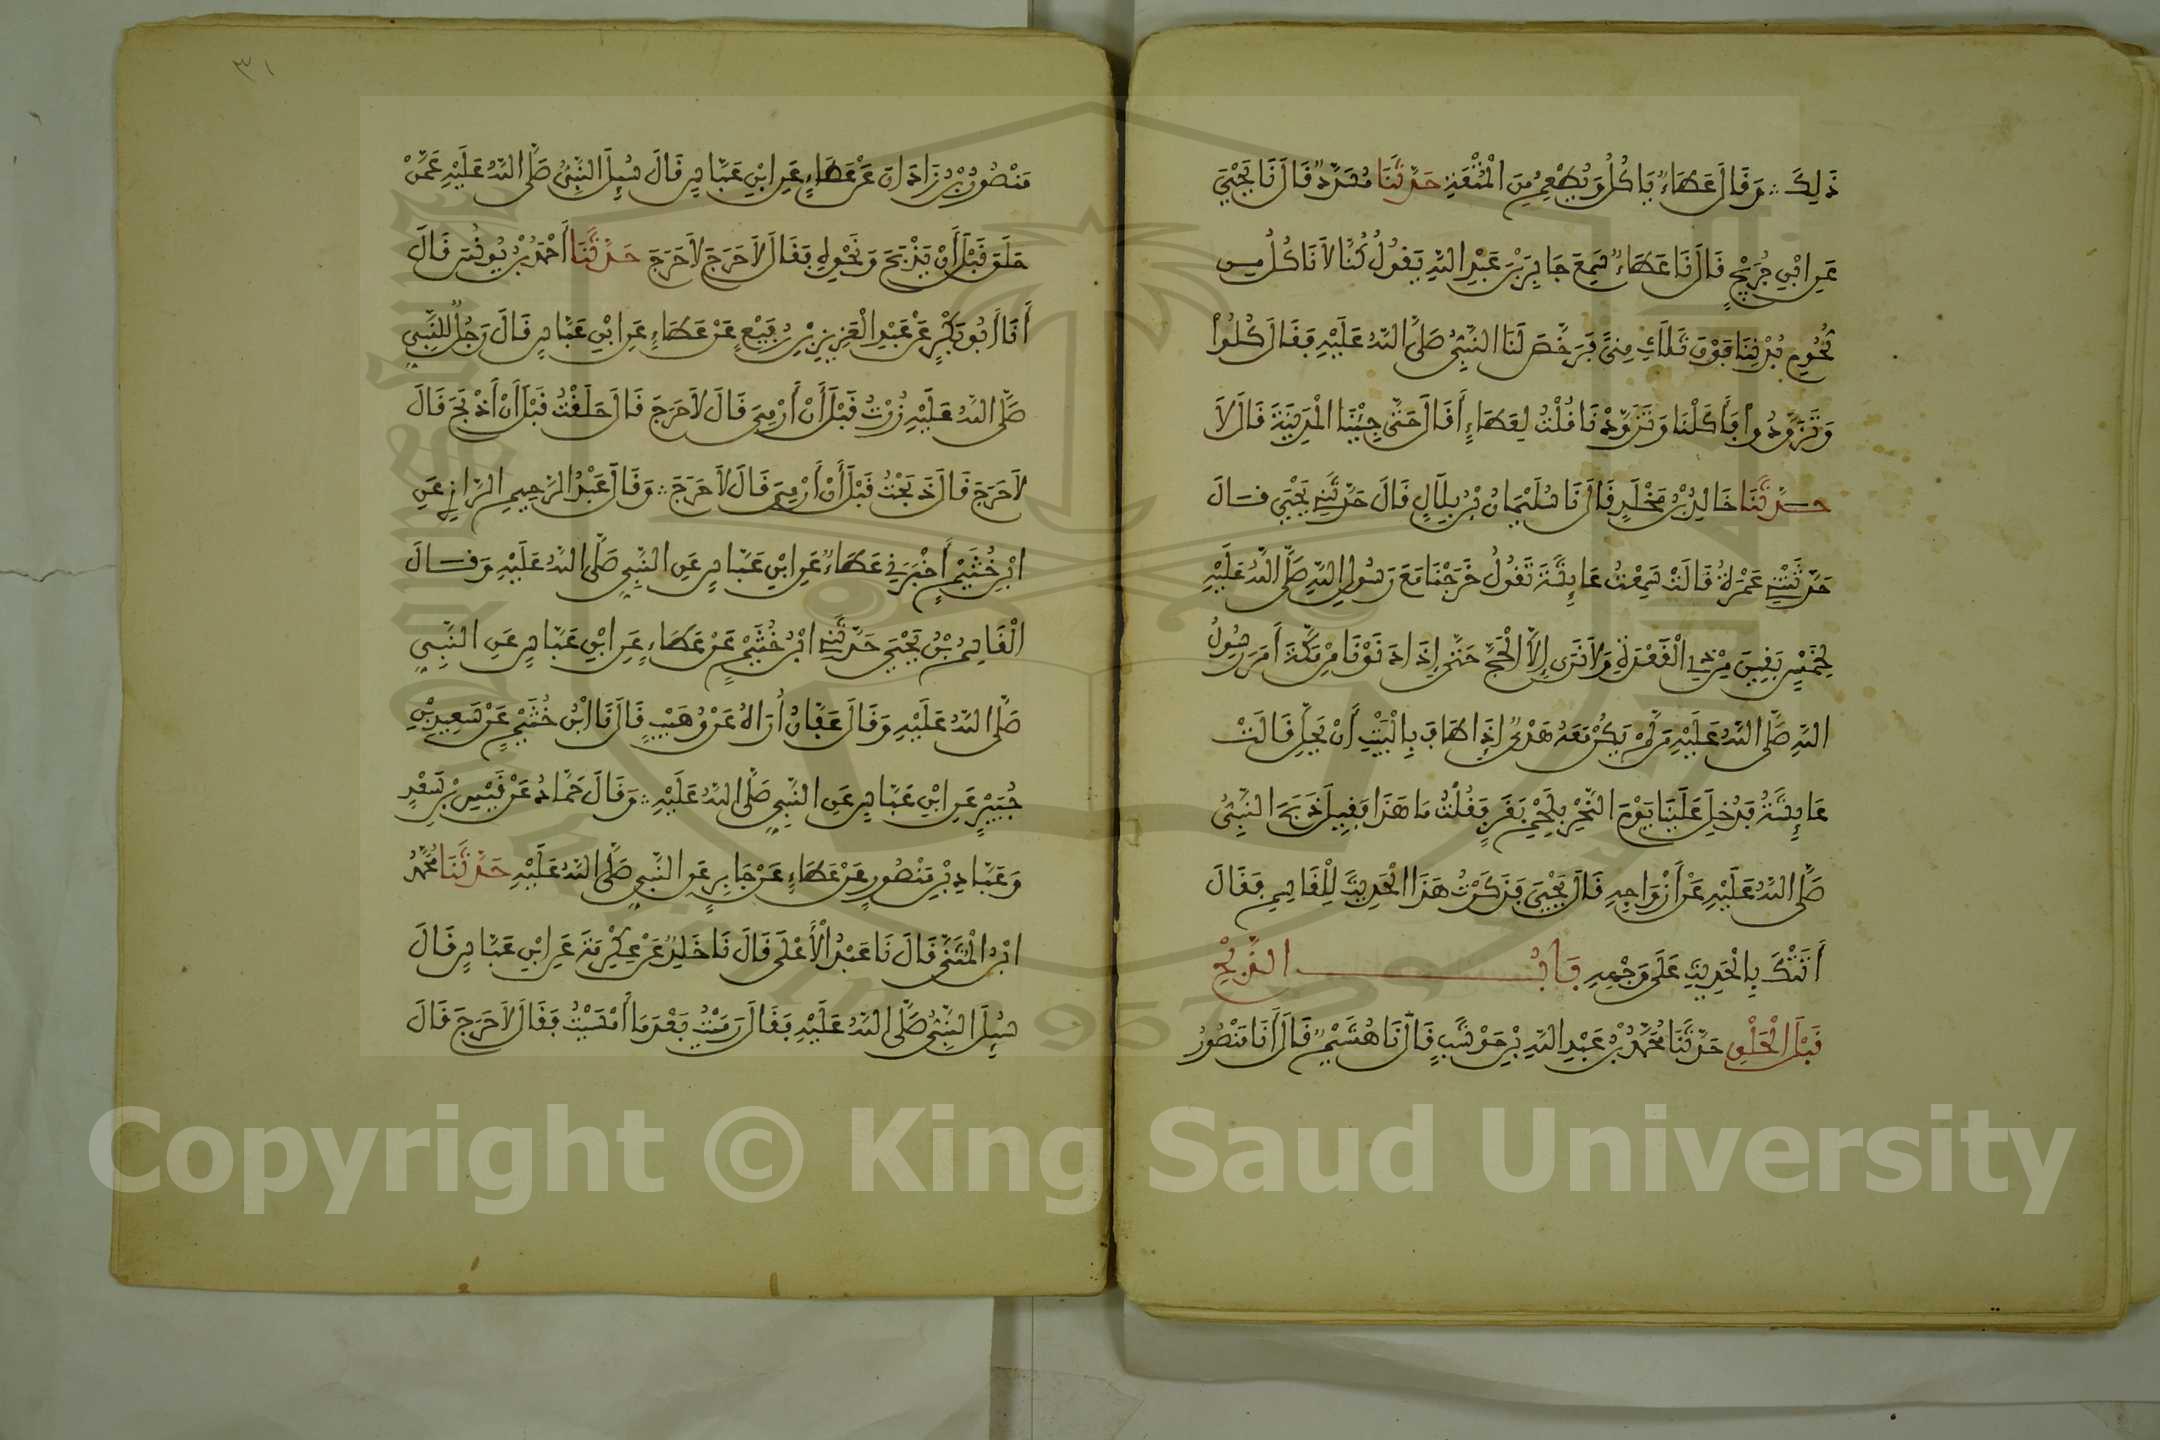 ذَلِكَ ۞ وَقَالَ عَطَاءٌ يَاكُلُ وَيُطْعِمُ مِنَ الْمُتْعَةِ حَدَّثَنَا مُسَدَّدٌ قَالَ نَا يَحْيَى
عَنِ ابْنِ جُرَيْجٍ قَالَ نَا عَطَاءٌ سَمِعَ جَابِرَ بْنَ عَبْدِ اللَّهِ يَقُولُ كُنَّا لَا نَاكُلُ مِن
لُحُومِ بُدْنِنَا فَوْقَ ثَلَاثِ مِنًى فَرَخَّصَ لَنَا النَّبِيُّ صَلَّى اللَّهُ عَلَيْهِ فَقَالَ كُلُوا
وَتَزَوَّدُوا فَأَكَلْنَا وَتَزَوَّدْنَا قُلْتُ لِعَطَاءٍ أَقَالَ حَتَّى جِئْنَا الْمَدِينَةَ قَالَ لَا
حَدَّثَنَا خَالِدُ بْنُ مَخْلَدٍ قَالَ نَا سُلَيْمَانُ بْنُ بِلَالٍ قَالَ حَدَّثَنِي يَحْيَى قَالَ
حَدَّثَتْنِي عَمْرَةُ قَالَتْ سَمِعْتُ عَائِشَةَ تَقُولُ خَرَجْنَا مَعَ رَسُولِ اللَّهِ صَلَّى اللَّهُ عَلَيْهِ
لِخَمْسٍ بَقِينَ مِنْ ذِي الْقَعْدَةِ وَلَا نَرَى إِلَّا الْحَجَّ حَتَّى إِذَا دَنَوْنَا مِنْ مَكَّةَ أَمَرَ رَسُولُ
اللَّهِ صَلَّى اللَّهُ عَلَيْهِ مَنْ لَمْ يَكُنْ مَعَهُ هَدْيٌ إِذَا طَافَ بِالْبَيْتِ أَنْ يَحِلَّ قَالَتْ
عَائِشَةُ فَدُخِلَ عَلَيْنَا يَوْمَ النَّحْرِ بِلَحْمِ بَقَرٍ فَقُلْتُ مَا هَذَا فَقِيلَ ذَبَحَ النَّبِيُّ
صَلَّى اللَّهُ عَلَيْهِ عَنْ أَزْوَاجِهِ قَالَ يَحْيَى فَذَكَرْتُ هَذَا الْحَدِيثَ لِلْقَاسِمِ فَقَالَ
أَتَتْكَ بِالْحَدِيثِ عَلَى وَجْهِهِ بَابُ الذَّبْحِ
قَبْلَ الْحَلْقِ حَدَّثَنَا مُحَمَّدُ بْنُ عَبْدِ اللَّهِ بْنِ حَوْشَبٍ قَالَ نَا هُشَيْمٌ قَالَ أَنَا مَنْصُورُ
٣١
مَنْصُورُ بْنُ زَاذَانَ عَنْ عَطَاءٍ عَنِ ابْنِ عَبَّاسٍ قَالَ سُئِلَ النَّبِيُّ صَلَّى اللَّهُ عَلَيْهِ عَمَّنْ
حَلَقَ قَبْلَ أَنْ يَذْبَحَ وَنَحْوِهِ فَقَالَ لَا حَرَجَ لَا حَرَجَ حَدَّثَنَا أَحْمَدُ بْنُ يُونُسَ قَالَ
أَنَا أَبُو بَكْرٍ عَنْ عَبْدِ الْعَزِيزِ بْنِ رُفَيْعٍ عَنْ عَطَاءٍ عَنِ ابْنِ عَبَّاسٍ قَالَ رَجُلٌ لِلنَّبِيِّ
صَلَّى اللَّهُ عَلَيْهِ زُرْتُ قَبْلَ أَنْ أَرْمِيَ قَالَ لَا حَرَجَ قَالَ حَلَقْتُ قَبْلَ أَنْ أَذْبَحَ قَالَ
لَا حَرَجَ قَالَ ذَبَحْتُ قَبْلَ أَنْ أَرْمِيَ قَالَ لَا حَرَجَ ۞ وَقَالَ عَبْدُ الرَّحِيمِ الرَّازِي عَنِ
ابْنِ خُثَيْمٍ أَخْبَرَنِي عَطَاءٌ عَنِ ابْنِ عَبَّاسٍ عَنِ النَّبِيِّ صَلَّى اللَّهُ عَلَيْهِ وَقَالَ
الْقَاسِمُ بْنُ يَحْيَى حَدَّثَنِي ابْنُ خُثَيْمٍ عَنْ عَطَاءٍ عَنِ ابْنِ عَبَّاسٍ عَنِ النَّبِيِّ
صَلَّى اللَّهُ عَلَيْهِ وَقَالَ عَفَّانُ أُرَاهُ عَنْ وُهَيْبٍ قَالَ نَا ابْنُ خُثَيْمٍ عَنْ سَعِيدِ بْنِ
جُبَيْرٍ عَنِ ابْنِ عَبَّاسٍ عَنِ النَّبِيِّ صَلَّى اللَّهُ عَلَيْهِ ۞ وَقَالَ حَمَّادٌ عَنْ قَيْسِ بْنِ سَعْدٍ
وَعَبَّادِ بْنِ مَنْصُورٍ عَنْ عَطَاءٍ عَنْ جَابِرٍ عَنِ النَّبِيِّ صَلَّى اللَّهُ عَلَيْهِ حَدَّثَنَا مُحَمَّدُ
ابْنُ الْمُثَنَّى قَالَ نَا عَبْدُ الْأَعْلَى قَالَ نَا خَالِدٌ عَنْ عِكْرِمَةَ عَنِ ابْنِ عَبَّاسٍ قَالَ
سُئِلَ النَّبِيُّ صَلَّى اللَّهُ عَلَيْهِ فَقَالَ رَمَيْتُ بَعْدَ مَا أَمْسَيْتُ فَقَالَ لَا حَرَجَ قَالَ
Copyright © King Saud University
1957